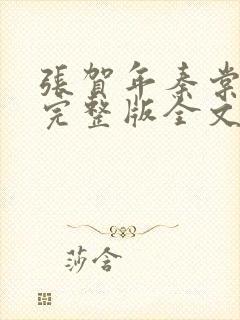 張賀年秦棠
完整版全文
莎含